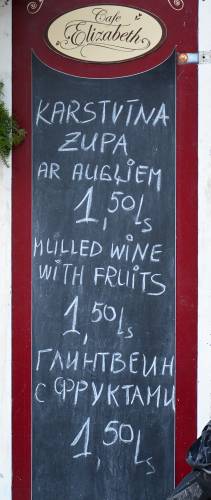 Cafe
Elizabeth
KARSTVĪNA
ZUPA
AR AUGLIEM
1,50 Ls
MULLED WINE
WITH FRUITS
1,50 Ls
ГЛИНТВЕИН
С ФРУКТАМИ
1,50 Ls